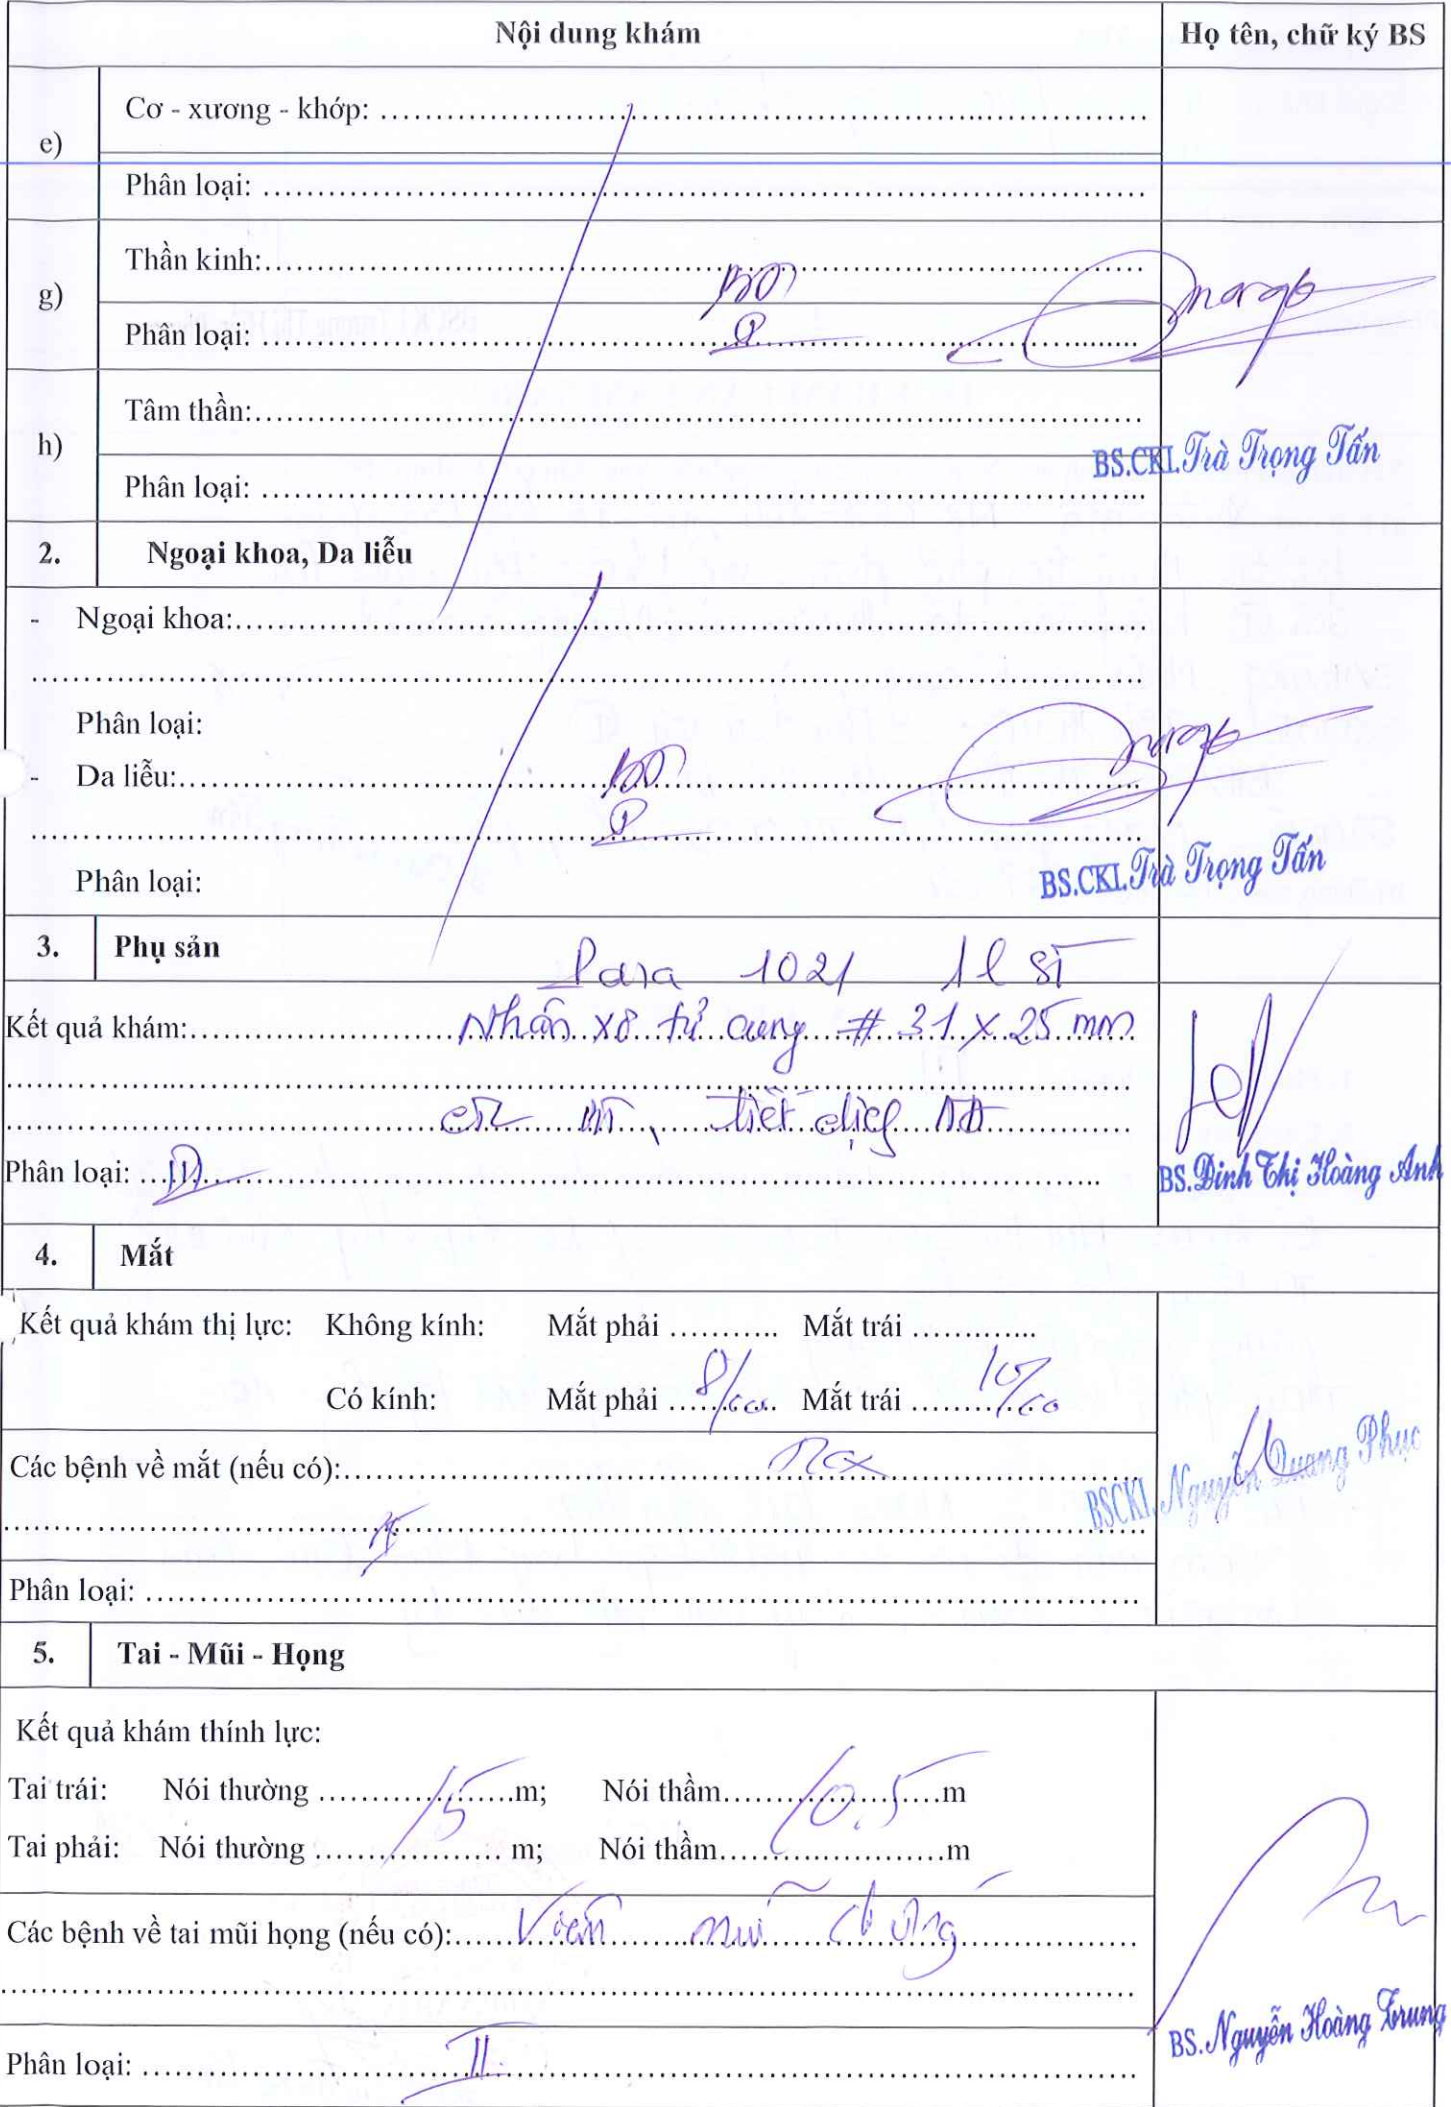 Nội dung khám Họ tên, chữ ký BS
e) Cơ - xương - khớp:
Phân loại:
g) Thần kinh:
Phân loại:
h) Tâm thần:
BS.CKI. Trà Trọng Tấn
Phân loại:
2. Ngoại khoa, Da liễu
- Ngoại khoa:
Phân loại:
- Da liễu:
BS.CKI. Trà Trọng Tấn
Phân loại:
3. Phụ sản Para 1021
Kết quả khám: Nhân xơ tử cung # 31 x 25 mm
tiết dịch
Phân loại:
BS. Đinh Thị Hoàng Anh
4. Mắt
Kết quả khám thị lực: Không kính: Mắt phải Mắt trái
Có kính: Mắt phải 8/10 Mắt trái 10/10
Các bệnh về mắt (nếu có):
BSCKI. Nguyễn Quang Phục
Phân loại:
5. Tai - Mũi - Họng
Kết quả khám thính lực:
Tai trái: Nói thường 5 m; Nói thầm 0.5 m
Tai phải: Nói thường m; Nói thầm m
Các bệnh về tai mũi họng (nếu có): Viêm mũi dị ứng
BS. Nguyễn Hoàng Trung
Phân loại: II